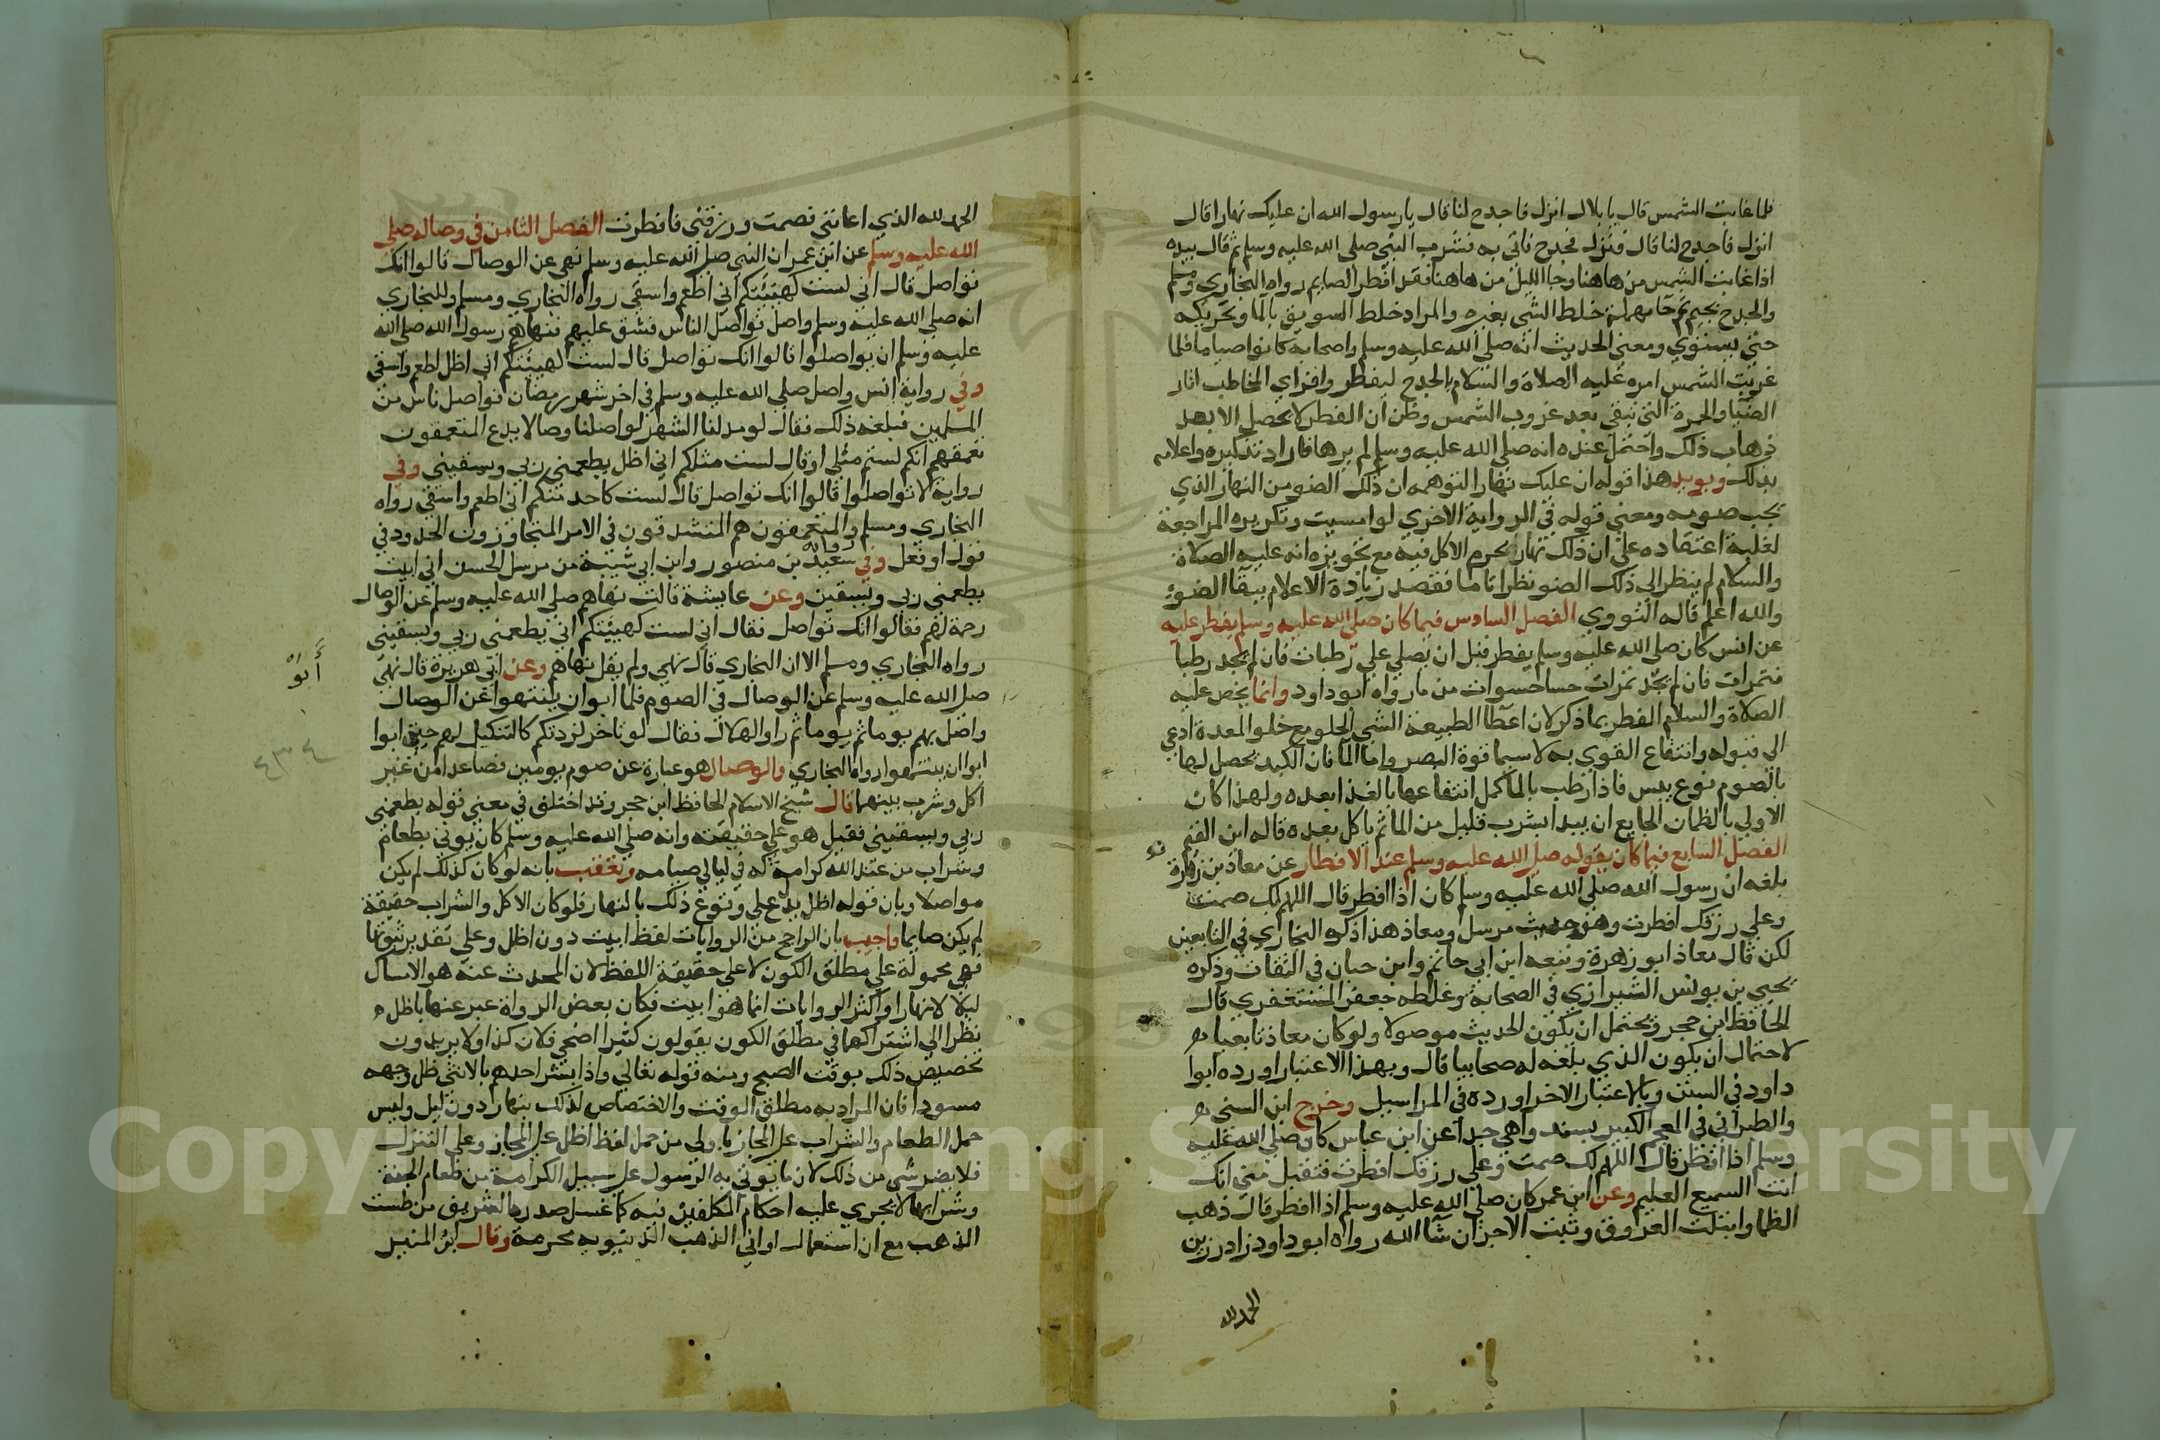 فلما غابت الشمس قال يا بلال انزل فاجدح لنا قال يا رسول الله ان عليك نهارا قال
انزل فاجدح لنا قال فنزل فجدح فاتي به فشرب النبي صلى الله عليه وسلم ثم قال بيده
اذا غابت الشمس من هاهنا وجا الليل من هاهنا فقد افطر الصايم رواه البخاري ومسلم
والجدح بجيم ثم حا مهملة خلط الشي بغيره والمراد خلط السويق بالما وتحريكه
حتى يستوي ومعنى الحديث انه صلى الله عليه وسلم واصحابه كانوا صياما فلما
غربت الشمس امره عليه الصلاة والسلام بالجدح ليفطروا فراي المخاطب اثار
الضيا والحمرة التي تبقى بعد غروب الشمس وظن ان الفطر لا يحصل الا بعد
ذهاب ذلك واحتمل عنده انه صلى الله عليه وسلم لم يرها فاراد تذكيره واعلامه
بذلك ويويد هذا قوله ان عليك نهارا لتوهمه ان ذلك الضو من النهار الذي
يجب صومه ومعنى قوله في الرواية الاخري لو امسيت وتكريره المراجعة
لغلبة اعتقاده على ان ذلك نهار يحرم الاكل فيه مع تجويزه انه عليه الصلاة
والسلام لم ينظر الى ذلك الضو نظرا تاما فقصد زيادة الاعلام ببقا الضوء
والله اعلم قاله النووي الفصل السادس فيما كان صلى الله عليه وسلم يفطر عليه
عن انس كان صلى الله عليه وسلم يفطر قبل ان يصلي علي رطبات فان لم يجد رطبا
فتمرات فان لم يجد تمرات حسا حسوات من ما رواه ابو داود وانما يخص عليه
الصلاة والسلام الفطر بما ذكر لان اعطا الطبيعة الشي الحلو مع خلو المعدة ادعي
الي قبوله وانتفاع القوي به لا سيما قوة البصر واما الما فان الكبد يحصل لها
بالصوم نوع يبس فاذا رطب بالما كمل انتفاعها بالغذا بعده ولهذا كان
الاولي بالظمان الجايع ان يبدا بشرب قليل من الما ثم ياكل بعده قاله ابن القيم
الفصل السابع فيما كان يقوله صلى الله عليه وسلم عند الافطار عن معاذ بن زهرة
بلغه ان رسول الله صلى الله عليه وسلم كان اذا افطر قال اللهم لك صمت
وعلي رزقك افطرت وهو حديث مرسل ومعاذ هذا ذكره البخاري في التابعين
لكن قال معاذ ابو زهرة وتبعه ابن ابي حاتم وابن حبان في الثقات وذكره
يحيي بن يونس الشيرازي في الصحابة وغلطه جعفر المستغفري قال
الحافظ ابن حجر ويحتمل ان يكون الحديث موصولا ولو كان معاذ تابعيا
لاحتمال ان يكون الذي بلغه له صحابيا قال وبهذا الاعتبار اورده ابوا
داود في السنن وبالاعتبار الاخر اورده في المراسيل وخرج ابن السني
والطبراني في المعجم الكبير بسند واهي جدا عن ابن عباس كان صلى الله عليه
وسلم اذا افطر قال اللهم لك صمت وعلي رزقك افطرت فتقبل مني انك
انت السميع العليم وعن ابن عمر كان صلى الله عليه وسلم اذا افطر قال ذهب
الظما وابتلت العروق وثبت الاجر ان شا الله رواه ابو داود زاد رزين
الحمد لله
الحمد لله الذي اعانني فصمت ورزقني فافطرت الفصل الثامن في وصاله صلى
الله عليه وسلم عن ابن عمر ان النبي صلى الله عليه وسلم نهي عن الوصال قالوا انك
تواصل قال اني لست كهيئتكم اني اطعم واسقي رواه البخاري ومسلم وللبخاري
انه صلى الله عليه وسلم واصل فواصل الناس فشق عليهم فنهاهم رسول الله صلى الله
عليه وسلم ان يواصلوا قالوا انك تواصل قال لست كهيئتكم اني اظل اطعم واسقي
وفي رواية انس واصل صلى الله عليه وسلم في اخر شهر رمضان فواصل ناس من
المسلمين فبلغه ذلك فقال لو مد لنا الشهر لواصلنا وصالا يدع المتعمقون
تعمقهم انكم لستم مثلي او قال لست مثلكم اني اظل يطعمني ربي ويسقيني وفي
رواية لا تواصلوا قالوا انك تواصل قال لست كاحد منكم اني اطعم واسقي رواه
البخاري ومسلم والمتعمقون هم المتشددون في الامر المتجاوزون الحدود في
قول او فعل وفي رواية سعيد بن منصور وابن ابي شيبة من مرسل الحسن اني ابيت
يطعمني ربي ويسقين وعن عايشة قالت نهاهم صلى الله عليه وسلم عن الوصال
رحمة لهم فقالوا انك تواصل فقال اني لست كهيئتكم اني يطعمني ربي ويسقيني
رواه البخاري ومسلم الا ان البخاري قال نهي ولم يقل نهاهم وعن ابي هريرة قال نهي
صلى الله عليه وسلم عن الوصال في الصوم فلما ابوا ان ينتهوا عن الوصال
واصل بهم يوما ثم يوما ثم راوا الهلال فقال لو تاخر لزدتكم كالتنكيل لهم حين ابوا
ابوا ان ينتهوا رواه البخاري والوصال هو عبارة عن صوم يومين فصاعدا من غير
اكل وشرب بينهما قال شيخ الاسلام الحافظ ابن حجر وقد اختلق في معني قوله يطعمني
ربي ويسقيني فقيل هو علي حقيقته وانه صلى الله عليه وسلم كان يوتي بطعام
وشراب من عند الله كرامة له في ليالي صيامه وتعقب بانه لو كان كذلك لم يكن
مواصلا وبان قوله اظل يدل علي وقوع ذلك بالنهار فلو كان الاكل والشراب حقيقة
لم يكن صايما واجيب بان الراجح من الروايات لفظ ابيت دون اظل وعلي تقدير ثبوتها
فهي محمولة علي مطلق الكون لا علي حقيقة اللفظ لان المحدث عنه هو الامساك
ليلا لا نهارا واكثر الروايات انما هو ابيت فكان بعض الرواة عبر عنها باظل
نظرا الى اشتراكهما في مطلق الكون يقولون كثيرا اضحي فلان كذا ولا يريدون
تخصيص ذلك بوقت الضحي ومنه قوله تعالي واذا بشر احدهم بالانثي ظل وجهه
مسودا فان المراد به مطلق الوقت والاختصاص لذلك بنهار دون ليل وليس
حمل الطعام والشراب على المجاز باولى من حمل لفظ اظل على المجاز وعلى التنزل
فلا يضر شي من ذلك لان ما يوتي به الرسول على سبيل الكرامة من طعام الجنة
وشرابها لا يجري عليه احكام المكلفين فيه كما غسل صدره الشريف من طست
الذهب مع ان استعمال اواني الذهب الدنيويه محرمة وقال ابن المنير
أبوا
٤٣٤
Copyright © King Saud University